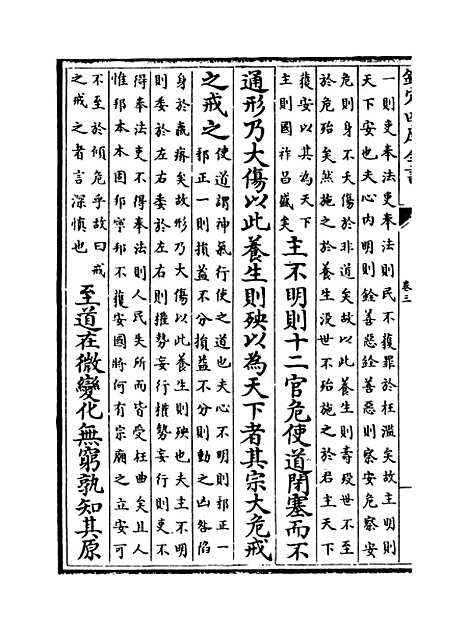 欽定四庫全書
卷三
一則吏奉法吏奉法則民不獲罪於枉濫矣故主明則
天下安也夫心内明則銓善惡銓善惡則察安危察安
危則身不夭傷於非道矣故以此養生則壽殁世不至
於危殆矣然施之於養生沒世不殆施之於君主天下
獲安以其為天下
主則國祚昌盛矣
主不明則十二官危使道閉塞而不
通形乃大傷以此養生則殃以為天下者其宗大危戒
之戒之
使道謂神氣行使之道也夫心不明則邪正一
邪正一則損益不分損益不分則動之凶咎陷
身於羸瘠矣故形乃大傷以此養生則殃也夫主不明
則委於左右委於左右則權勢妄行權勢妄行則吏不
得奉法吏不得奉法則人民失所而皆受枉曲矣且人
惟邦本本固邦寧邦不獲安國將何有宗廟之立安可
不至於傾危乎故曰戒
之戒之者言深慎也
至道在微變化無窮孰知其原